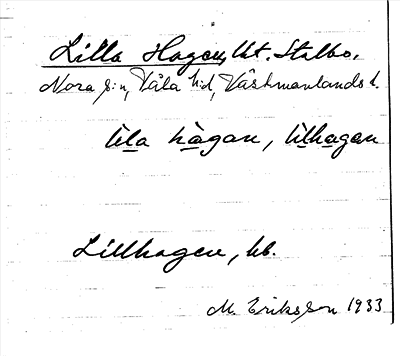 Lilla Hagen, kt. Stalbo,
Nora s:n, Våla hd, Västmanlands l.
lila hàgan, lilhagan
Lillhagen, hb.
M. Eriksson 1933